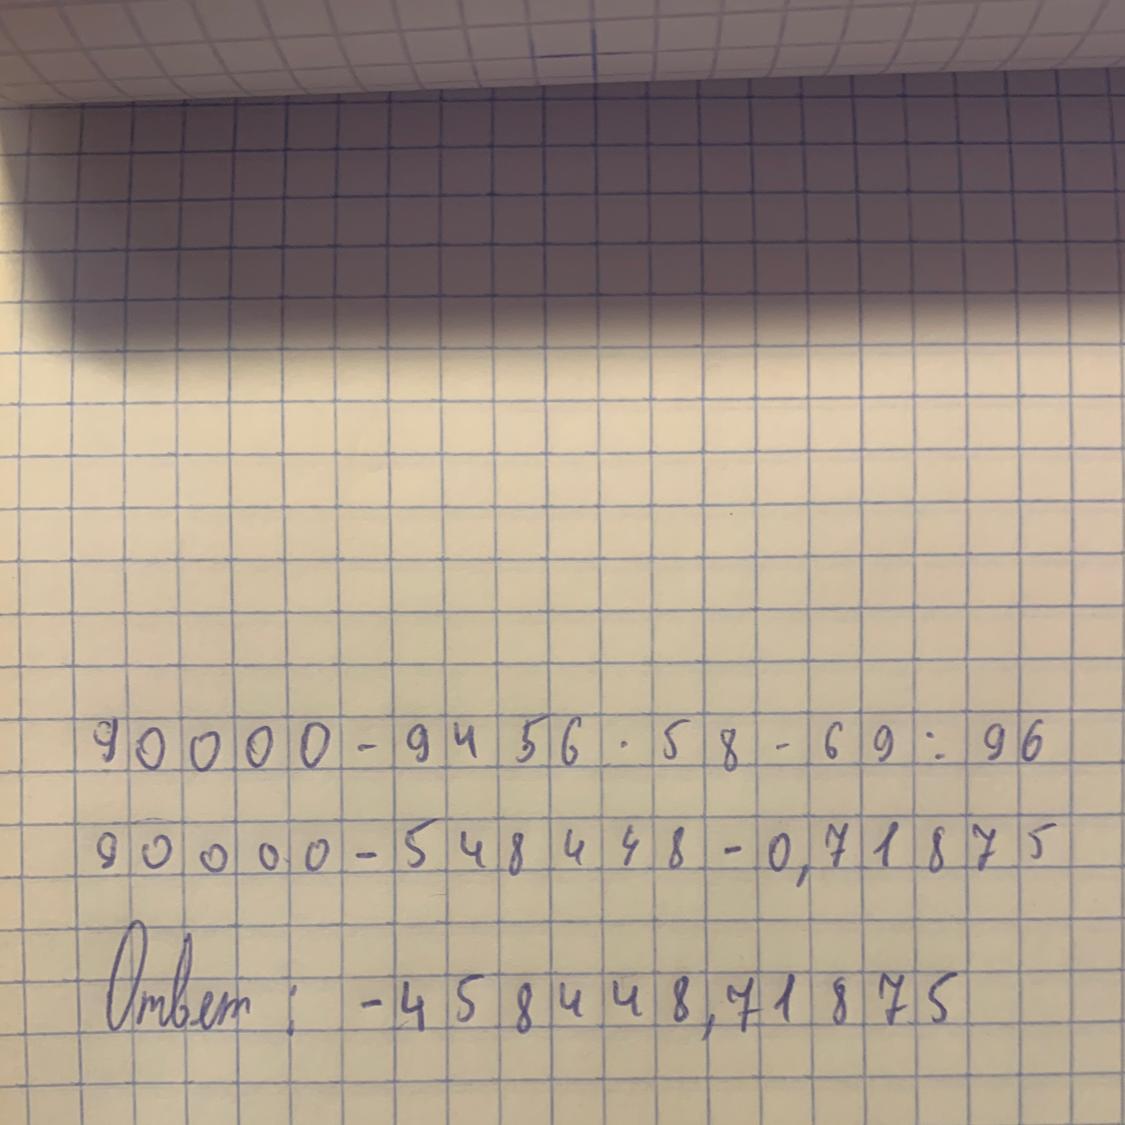 90000-9456·58-69:96
90000-548448-0,71875
Ответ: -458448,71875